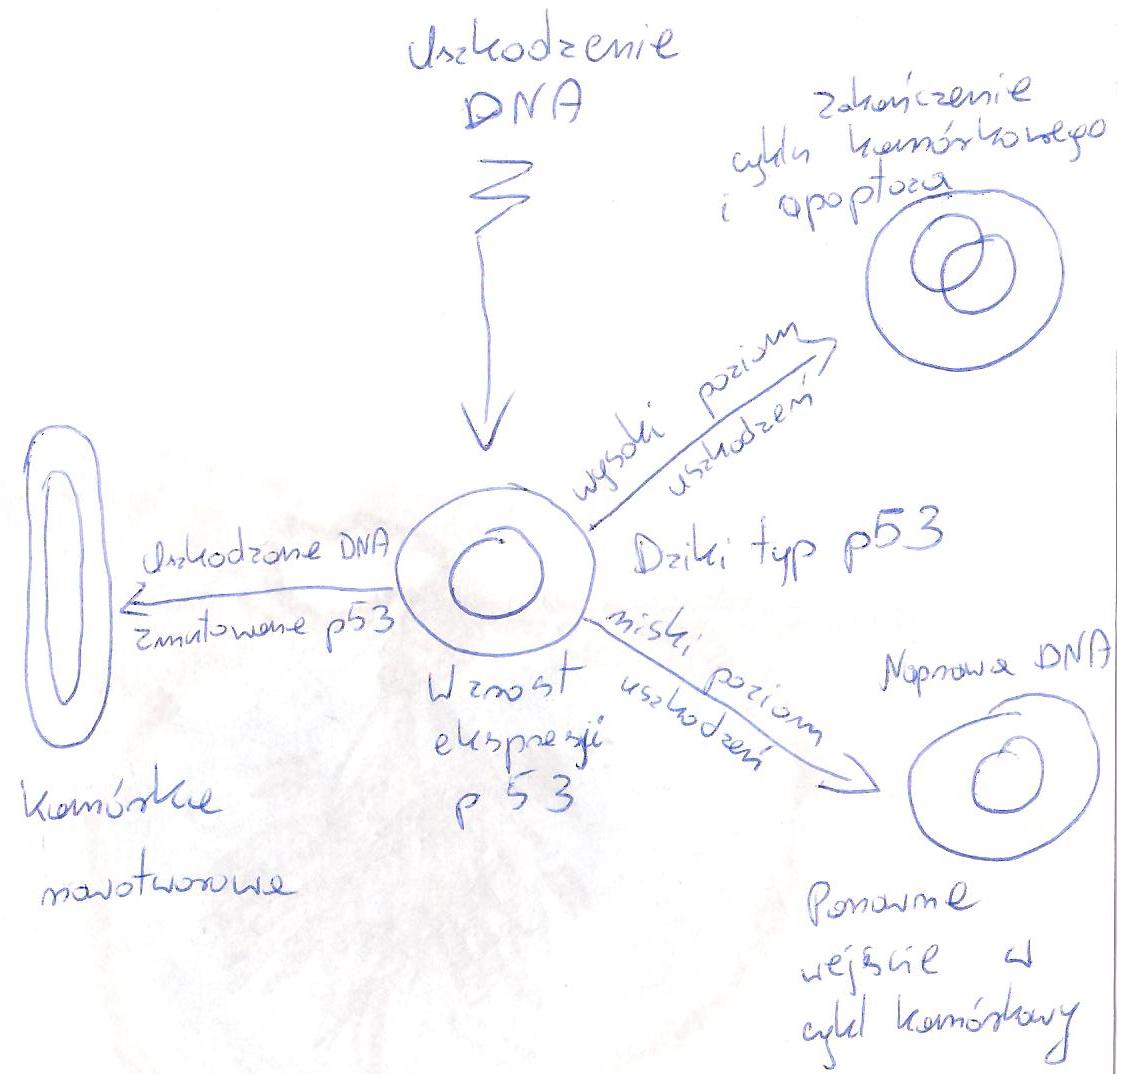 Uszkodzenie
DNA
Zakończenie
cyklu komórkowego
i apoptoza
wysoki poziom
uszkodzeń
Dziki typ p53
Uszkodzone DNA
Zmutowane p53
niski poziom
uszkodzeń
Wzrost
ekspresji
p53
Naprawa DNA
Komórka
nowotworowa
Ponowne
wejście w
cykl komórkowy